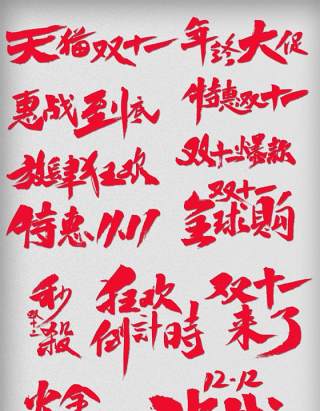 天猫双十一
年终大促
惠战到底
特惠双十一
放肆狂欢
双十二爆款
特惠11.11
双十一
全球购
秒殺
双十二
狂欢
倒計時
双十一
来了
12-12